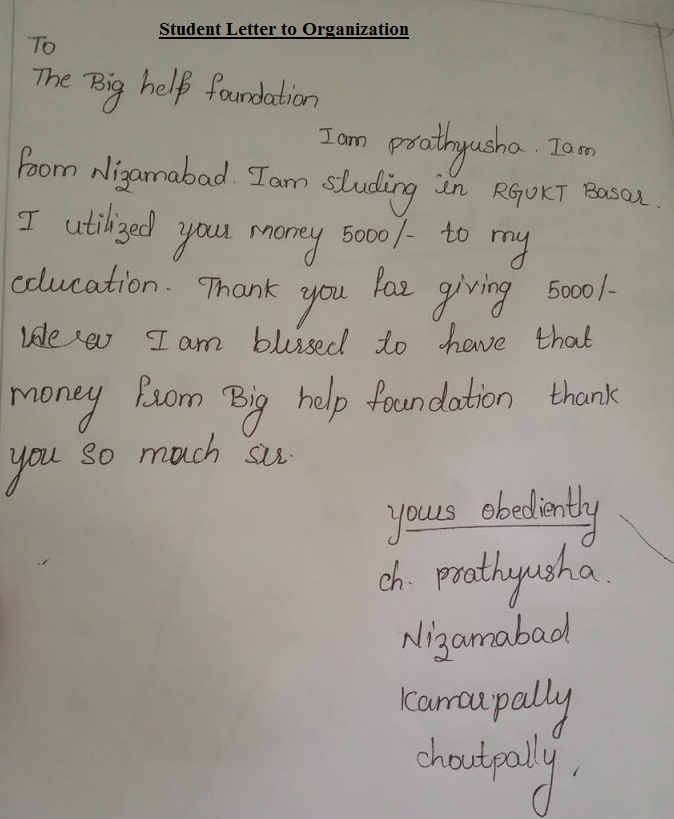 Student Letter to Organization
To
The Big help foundation
I am prathyusha. I am
from Nizamabad. I am studing in RGUKT Basar.
I utilized your money 5000/- to my
education. Thank you for giving 5000/-
I am blessed to have that
money from Big help foundation thank
you so much sir.
yours obediently
ch. prathyusha.
Nizamabad
Kamarpally
choutpally.